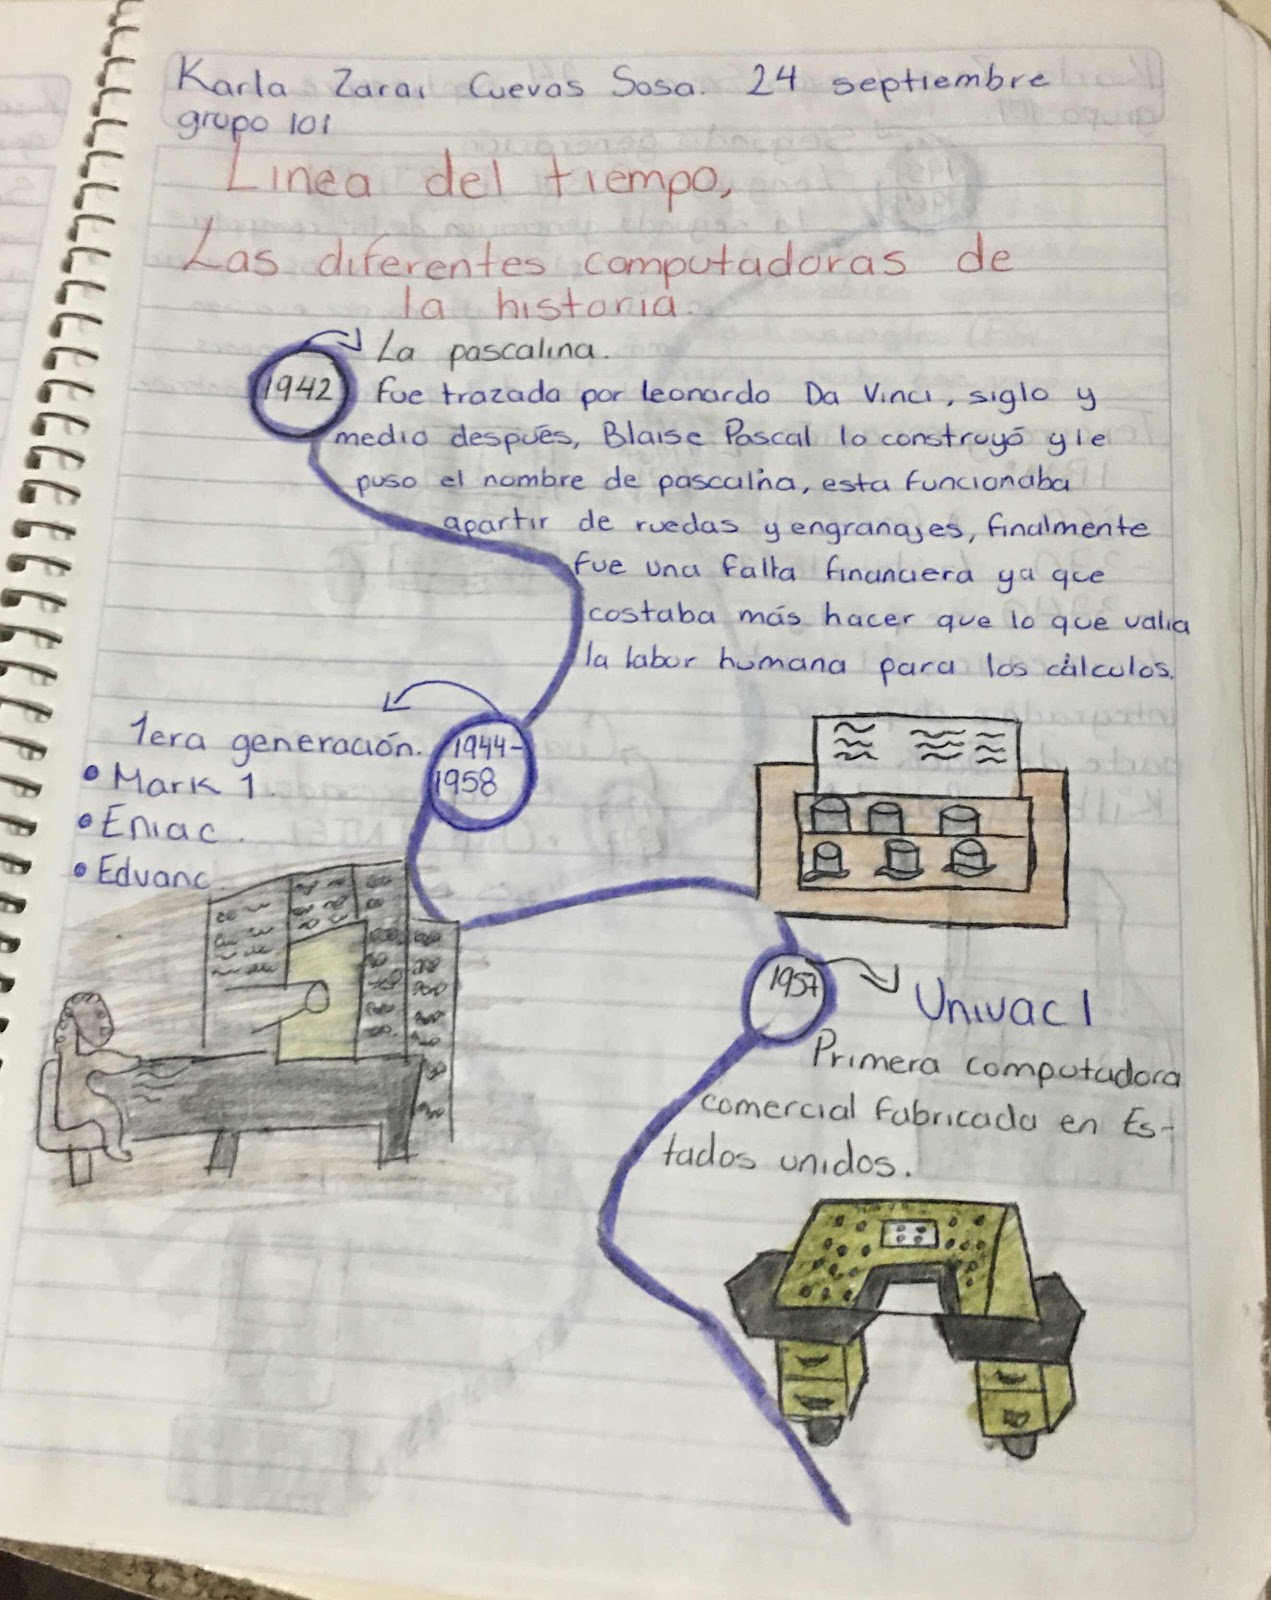 Karla Zarai Cuevas Sosa. 24 septiembre
grupo 101
Linea del tiempo,
Las diferentes computadoras de
la historia.
1942
La pascalina.
Fue trazada por leonardo Da Vinci, siglo y
medio después, Blaise Pascal lo construyó y le
puso el nombre de pascalina, esta funcionaba
apartir de ruedas y engranajes, finalmente
fue una falta financiera ya que
costaba más hacer que lo que valia
la labor humana para los cálculos.
1944-
1958
1era generación.
• Mark 1.
• Eniac.
• Edvanc.
1957
Univac 1
Primera computadora
comercial fabricada en Es-
tados unidos.